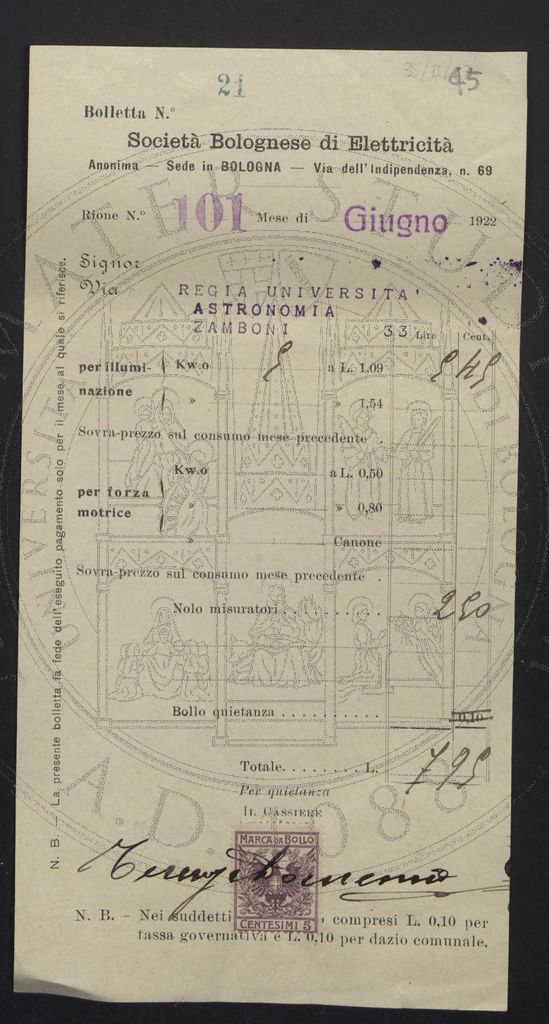 21
45
Bolletta N.°
Società Bolognese di Elettricità
Anonima — Sede in BOLOGNA — Via dell'Indipendenza, n. 69
Rione N.° 101 Mese di Giugno 1922
Signor
Via
REGIA UNIVERSITA'
ASTRONOMIA
ZAMBONI 33 Lire Cent.
per illumi- Kw.o 5 a L. 1,09 5 45
nazione » » 1,54
Sovra-prezzo sul consumo mese precedente .
Kw.o a L. 0,50
per forza
motrice » » 0,80
» Canone
Sovra-prezzo sul consumo mese precedente .
Nolo misuratori . . . . . . . . . . 2 50
Bollo quietanza . . . . . . . . . 0,10
Totale. . . . . . . . L. 7 95
Per quietanza
IL CASSIERE
MARCA DA BOLLO
CENTESIMI 5
N. B. - Nei suddetti compresi L. 0,10 per
tassa governativa e L. 0,10 per dazio comunale.
N. B. — La presente bolletta fa fede dell'eseguito pagamento solo per il mese al quale si riferisce.
A.D. 1088